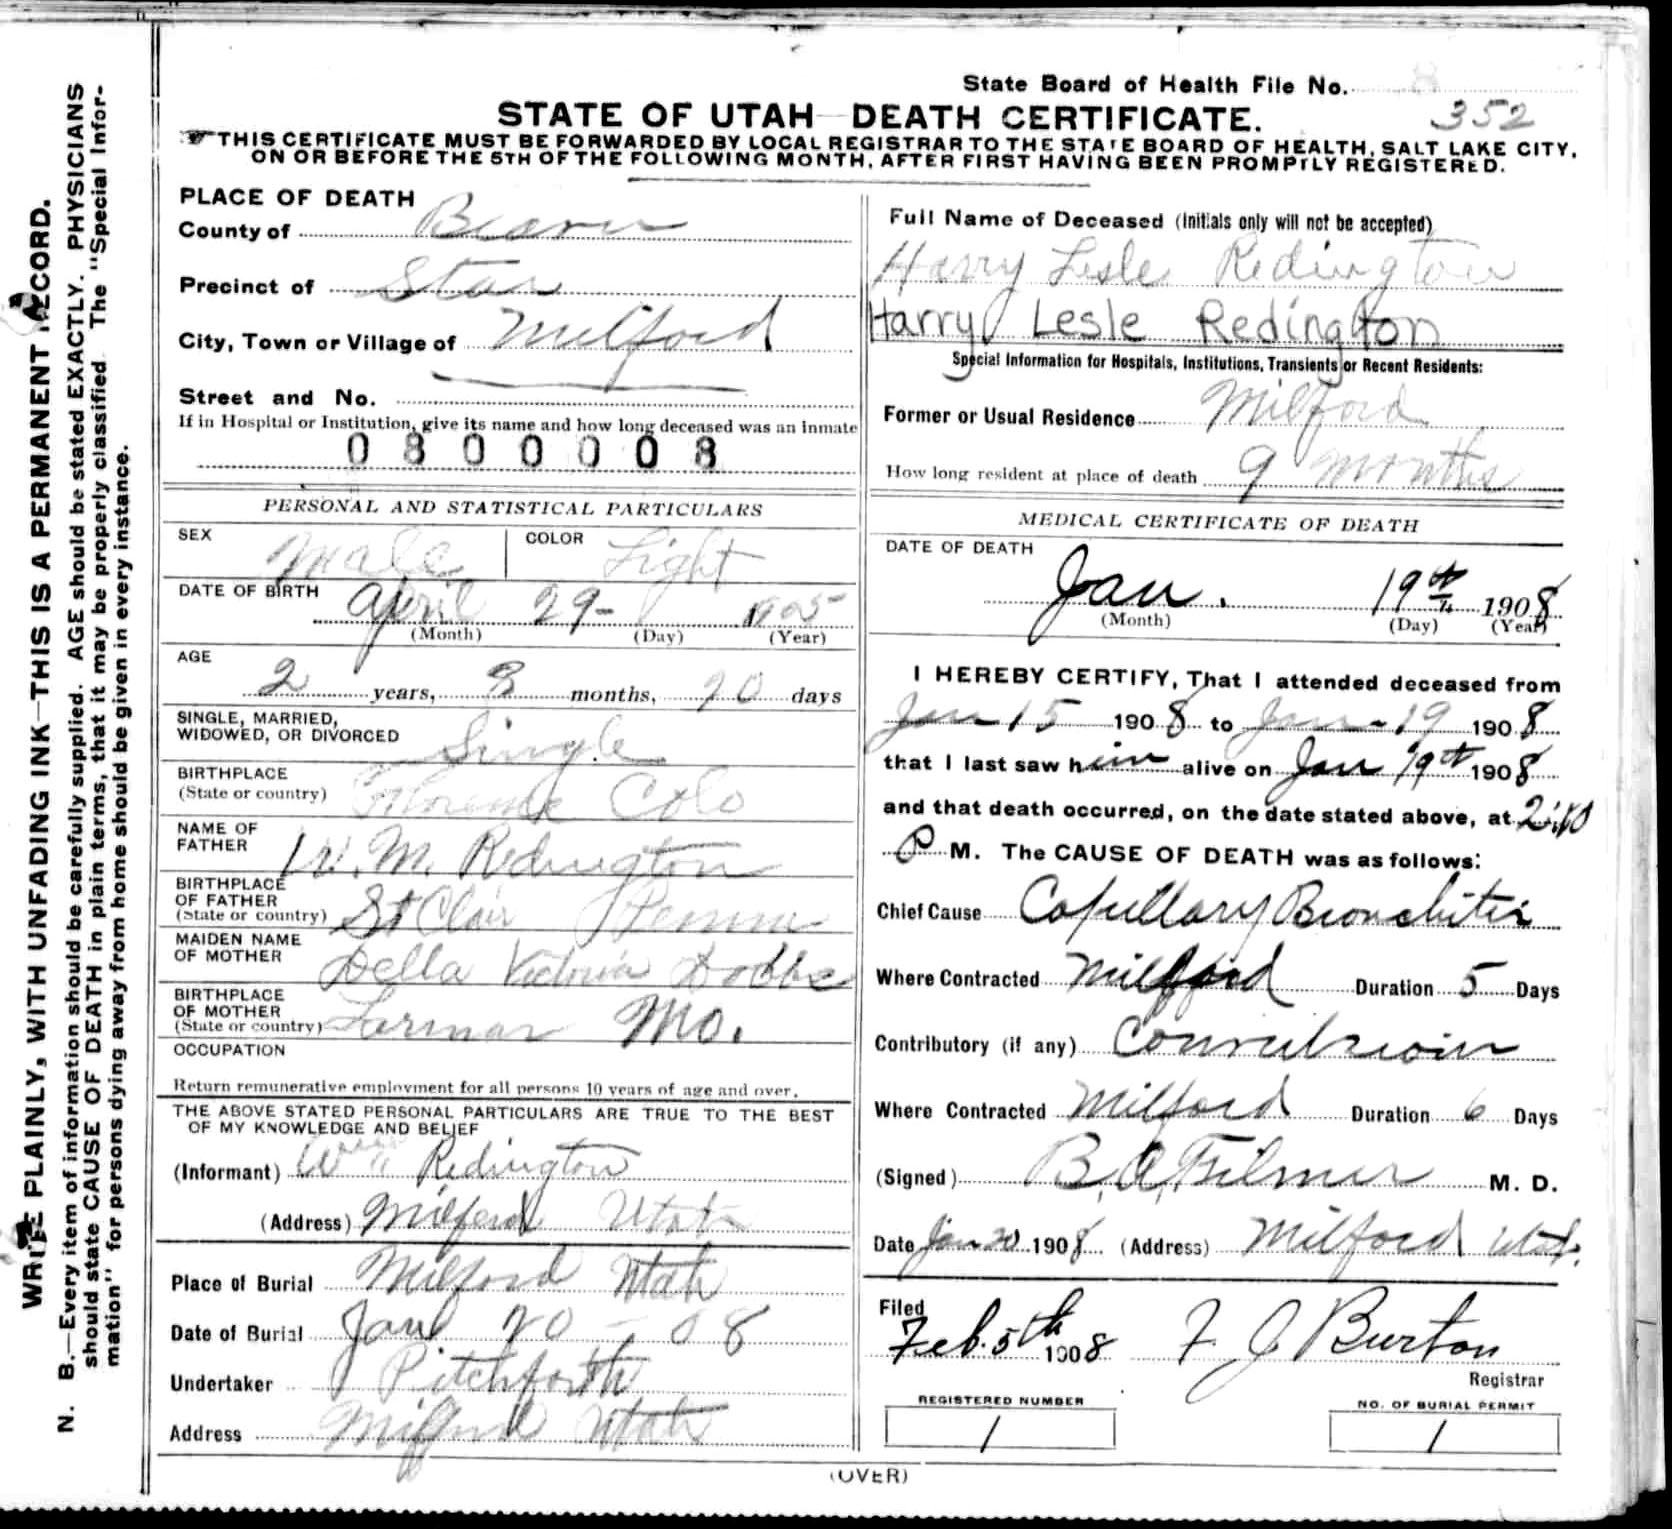 WRITE PLAINLY, WITH UNFADING INK—THIS IS A PERMANENT RECORD.
N. B.—Every item of information should be carefully supplied. AGE should be stated EXACTLY. PHYSICIANS
should state CAUSE OF DEATH in plain terms, that it may be properly classified. The "Special Infor-
mation" for persons dying away from home should be given in every instance.
State Board of Health File No. 8
352
STATE OF UTAH—DEATH CERTIFICATE.
THIS CERTIFICATE MUST BE FORWARDED BY LOCAL REGISTRAR TO THE STATE BOARD OF HEALTH, SALT LAKE CITY,
ON OR BEFORE THE 5TH OF THE FOLLOWING MONTH, AFTER FIRST HAVING BEEN PROMPTLY REGISTERED.
PLACE OF DEATH
County of Beaver
Precinct of Star
City, Town or Village of Milford
Street and No.
If in Hospital or Institution, give its name and how long deceased was an inmate
0800008
PERSONAL AND STATISTICAL PARTICULARS
SEX Male COLOR Light
DATE OF BIRTH April 29- 1905
(Month) (Day) (Year)
AGE
2 years, 8 months, 20 days
SINGLE, MARRIED,
WIDOWED, OR DIVORCED Single
BIRTHPLACE
(State or country) Florence Colo
NAME OF
FATHER W. M. Redington
BIRTHPLACE
OF FATHER
(State or country) St Clair Penna
MAIDEN NAME
OF MOTHER Della Victoria Dobbs
BIRTHPLACE
OF MOTHER
(State or country) Mo.
OCCUPATION
Return remunerative employment for all persons 10 years of age and over.
THE ABOVE STATED PERSONAL PARTICULARS ARE TRUE TO THE BEST
OF MY KNOWLEDGE AND BELIEF
(Informant) Redington
(Address) Milford Utah
Place of Burial Milford Utah
Date of Burial Jan 20 - 08
Undertaker Pitchforth
Address Milford Utah
Full Name of Deceased (Initials only will not be accepted)
Harry Lesle Redington
Harry Lesle Redington
Special Information for Hospitals, Institutions, Transients or Recent Residents:
Former or Usual Residence Milford
How long resident at place of death 9 months
MEDICAL CERTIFICATE OF DEATH
DATE OF DEATH
Jan. 19th 1908
(Month) (Day) (Year)
I HEREBY CERTIFY, That I attended deceased from
Jan 15 1908 to Jan - 19 1908
that I last saw him alive on Jan 19th 1908
and that death occurred, on the date stated above, at 2:10
P M. The CAUSE OF DEATH was as follows:
Chief Cause Capillary Bronchitis
Where Contracted Milford Duration 5 Days
Contributory (if any) Convulsions
Where Contracted Milford Duration 6 Days
(Signed) B. A. Filmer M. D.
Date Jan 20 1908 (Address) Milford Utah.
Filed
Feb. 5th 1908 F J Burton
Registrar
REGISTERED NUMBER
1
NO. OF BURIAL PERMIT
1
(OVER)